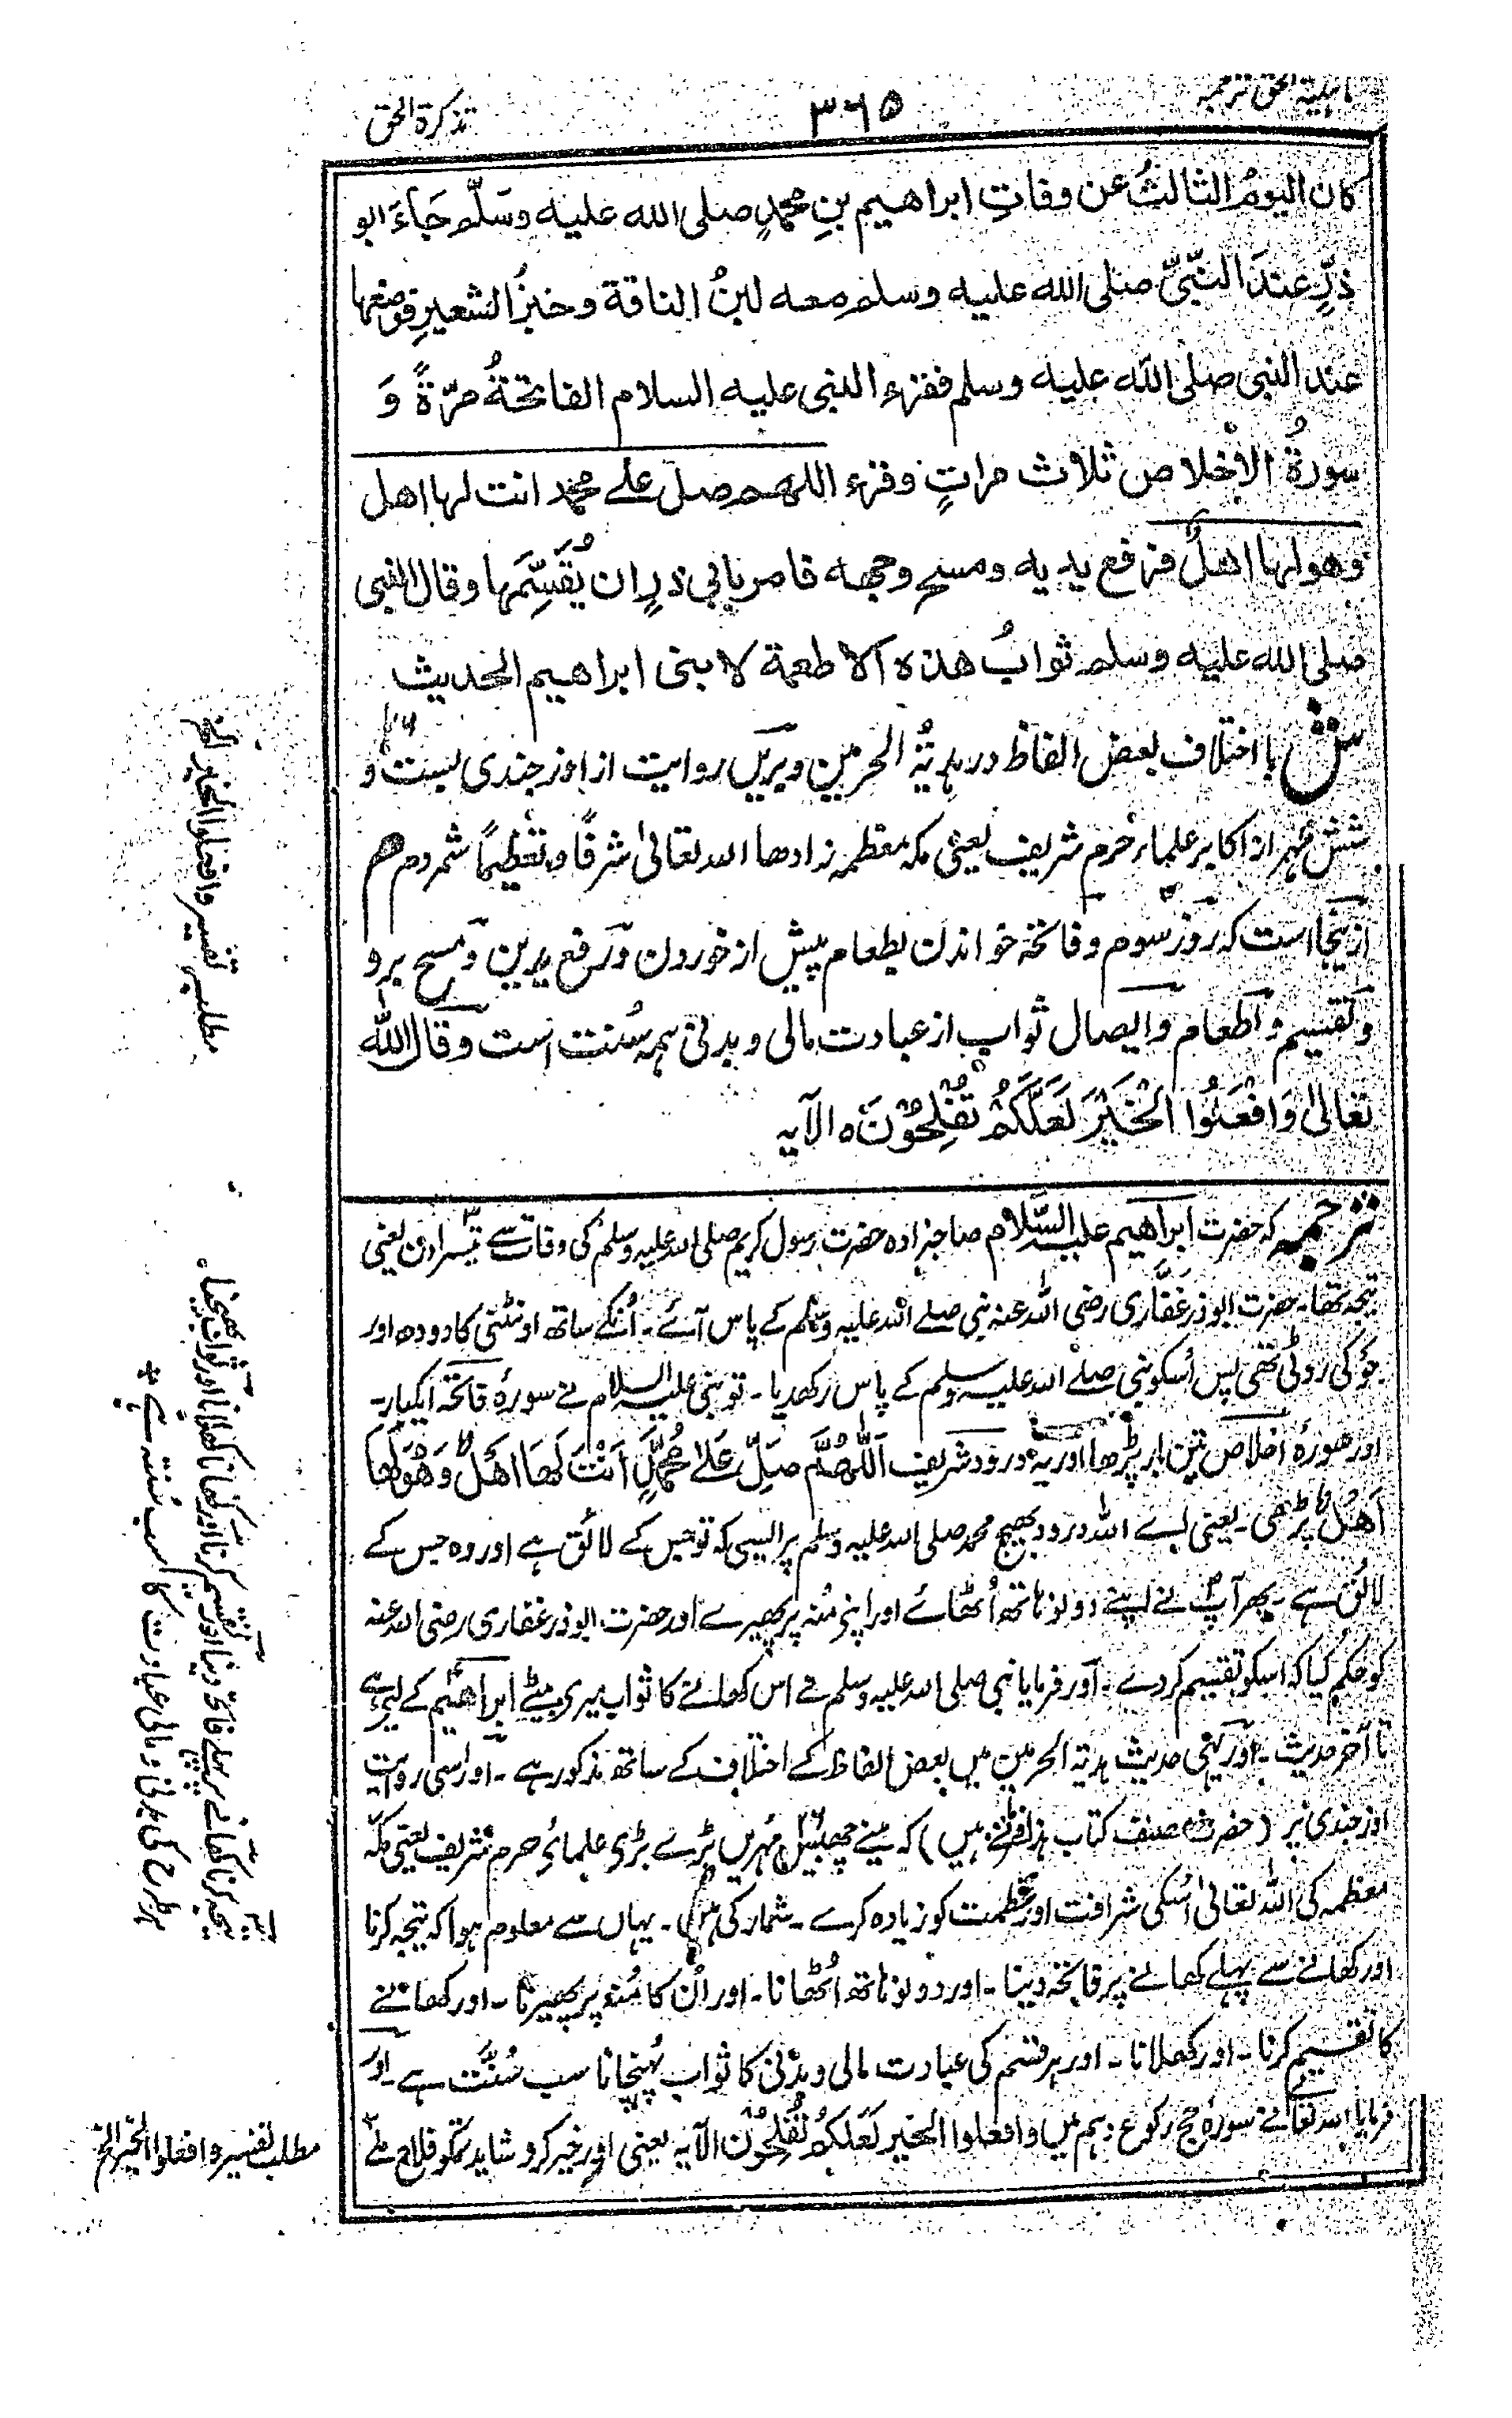 تذکرة الحق
۳۶۵
ترجمہ
كان اليومُ الثالثُ عن وفاتِ ابراهيم بنِ محمدٍ صلى الله عليه وسلّم جَاءَ ابو
ذرٍّ عندَ النَّبیِّ صلى الله عليه وسلم معه لبنُ الناقة وخبزُ الشعيرِ فوضعها
عند النبی صلی الله عليه وسلم فقرء النبی عليه السلام الفاتحةَ مرّةً وَ
سورةُ الاخلاص ثلاث مراتٍ وقرء اللهم صل علے محمد انت لها اهل
وهو لها اهلٌ فرفع يديه ومسح وجهه فامر بابي ذرٍ ان يُقَسِّمَها وقال النبی
صلى الله عليه وسلم ثوابُ هذه الاطعمة لابنی ابراهیم الحديث
ش با اختلاف بعض الفاظ در ہدیۃُ الحرمین وبریں روایت از اوزجندی بست و
شش مُہر از اکابر علماءِ حرم شریف یعنی مکہ معظمہ زادھا اللہ تعالیٰ شرفًا وتعظیمًا شمردم ھم
ازینجا است کہ روز سوم و فاتحہ خواندن بطعام پیش از خوردن ورفع یدین ومسح برو
وتقسیم واطعام وایصال ثواب از عبادت مالی وبدنی ہمہ سُنت است وقال اللّٰه
تعالیٰ وَافْعَلُوا الْخَيْرَ لَعَلَّكُمْ تُفْلِحُوْنَ ہ الآیہ
ترجمہ کہ حضرت ابراہیم علیہ السَّلام صاحبزادہ حضرت رسول کریم صلی اللہ علیہ وسلم کی وفات سے تیسرا دن یعنی
تیجہ تھا۔ حضرت ابوذر غفاری رضی اللہ عنہ نبی صلے اللہ علیہ وسلم کے پاس آئے۔ اُنکے ساتھ اونٹنی کا دودھ اور
جو کی روٹی تھی پس اُسکو نبی صلے اللہ علیہ وسلم کے پاس رکھدیا۔ تو نبی علیہ السلام نے سورۂ فاتحہ ایکبار۔
اور سورۂ اخلاص تین بار پڑھا اور یہ درود شریف اَللّٰهُمَّ صَلِّ عَلٰے مُحَمَّدٍ اَنْتَ لَهَا اَهْلٌ وَهُوَ لَهَا
اَهْلٌ پڑھی۔ یعنی اے اللہ درود بھیج محمد صلی اللہ علیہ وسلم پر ایسی کہ تو جس کے لائق ہے اور وہ جس کے
لائق ہے۔ پھر آپ نے اپنے دونو ہاتھ اُٹھائے اور اپنے مُنہ پر پھیرے اور حضرت ابوذر غفاری رضی اللہ عنہ
کو حکم کیا کہ اسکو تقسیم کردے۔ اور فرمایا نبی صلی اللہ علیہ وسلم نے اس کھانے کا ثواب میری بیٹے ابراھیم کے لیے ہے
تا آخر حدیث۔ اور یہی حدیث ہدیۃ الحرمین میں بعض الفاظ کے اختلاف کے ساتھ مذکور ہے۔ اور اسی روایت
اوزجندی پر (حضرت مصنف کتاب ہذا فرماتے ہیں) کہ مینے چھبیس ۲۶ مُہریں بڑے بڑی علمائے حرم شریف یعنی مکہ
معظمہ کی اللہ تعالیٰ اُسکی شرافت اور عظمت کو زیادہ کرے۔ شمار کی ہیں۔ یہاں سے معلوم ہوا کہ تیجہ کرنا
اور کھانے سے پہلے کھانے پر فاتحہ دینا۔ اور دونو ہاتھ اُٹھانا۔ اور اُن کا مُنہ پر پھیرنا۔ اور کھانے
کا تقسیم کرنا۔ اور کھلانا۔ اور ہر قسم کی عبادت مالی و بدنی کا ثواب پُہنچانا سب سُنّت ہے۔ اور
فرمایا اللہ تعالےٰ نے سورۂ حج رکوع دہم میں وافعلوا الخیر لعلکم تُفْلِحُوْن الآیہ یعنی اور خیر کرو شاید تمکو فلاح ملے
مطلب تفسیر وافعلوا الخیر الخ
تیجہ کرنا کھانے پر پہلے فاتحہ دینا اور تقسیم کرنا اور کھانا کھلانا اور ثواب بھیجنا۔
ہر طرح کی بدنی و مالی عبادت کا سب سُنّت ہے
مطلب تفسیر وافعلوا الخیر الخ